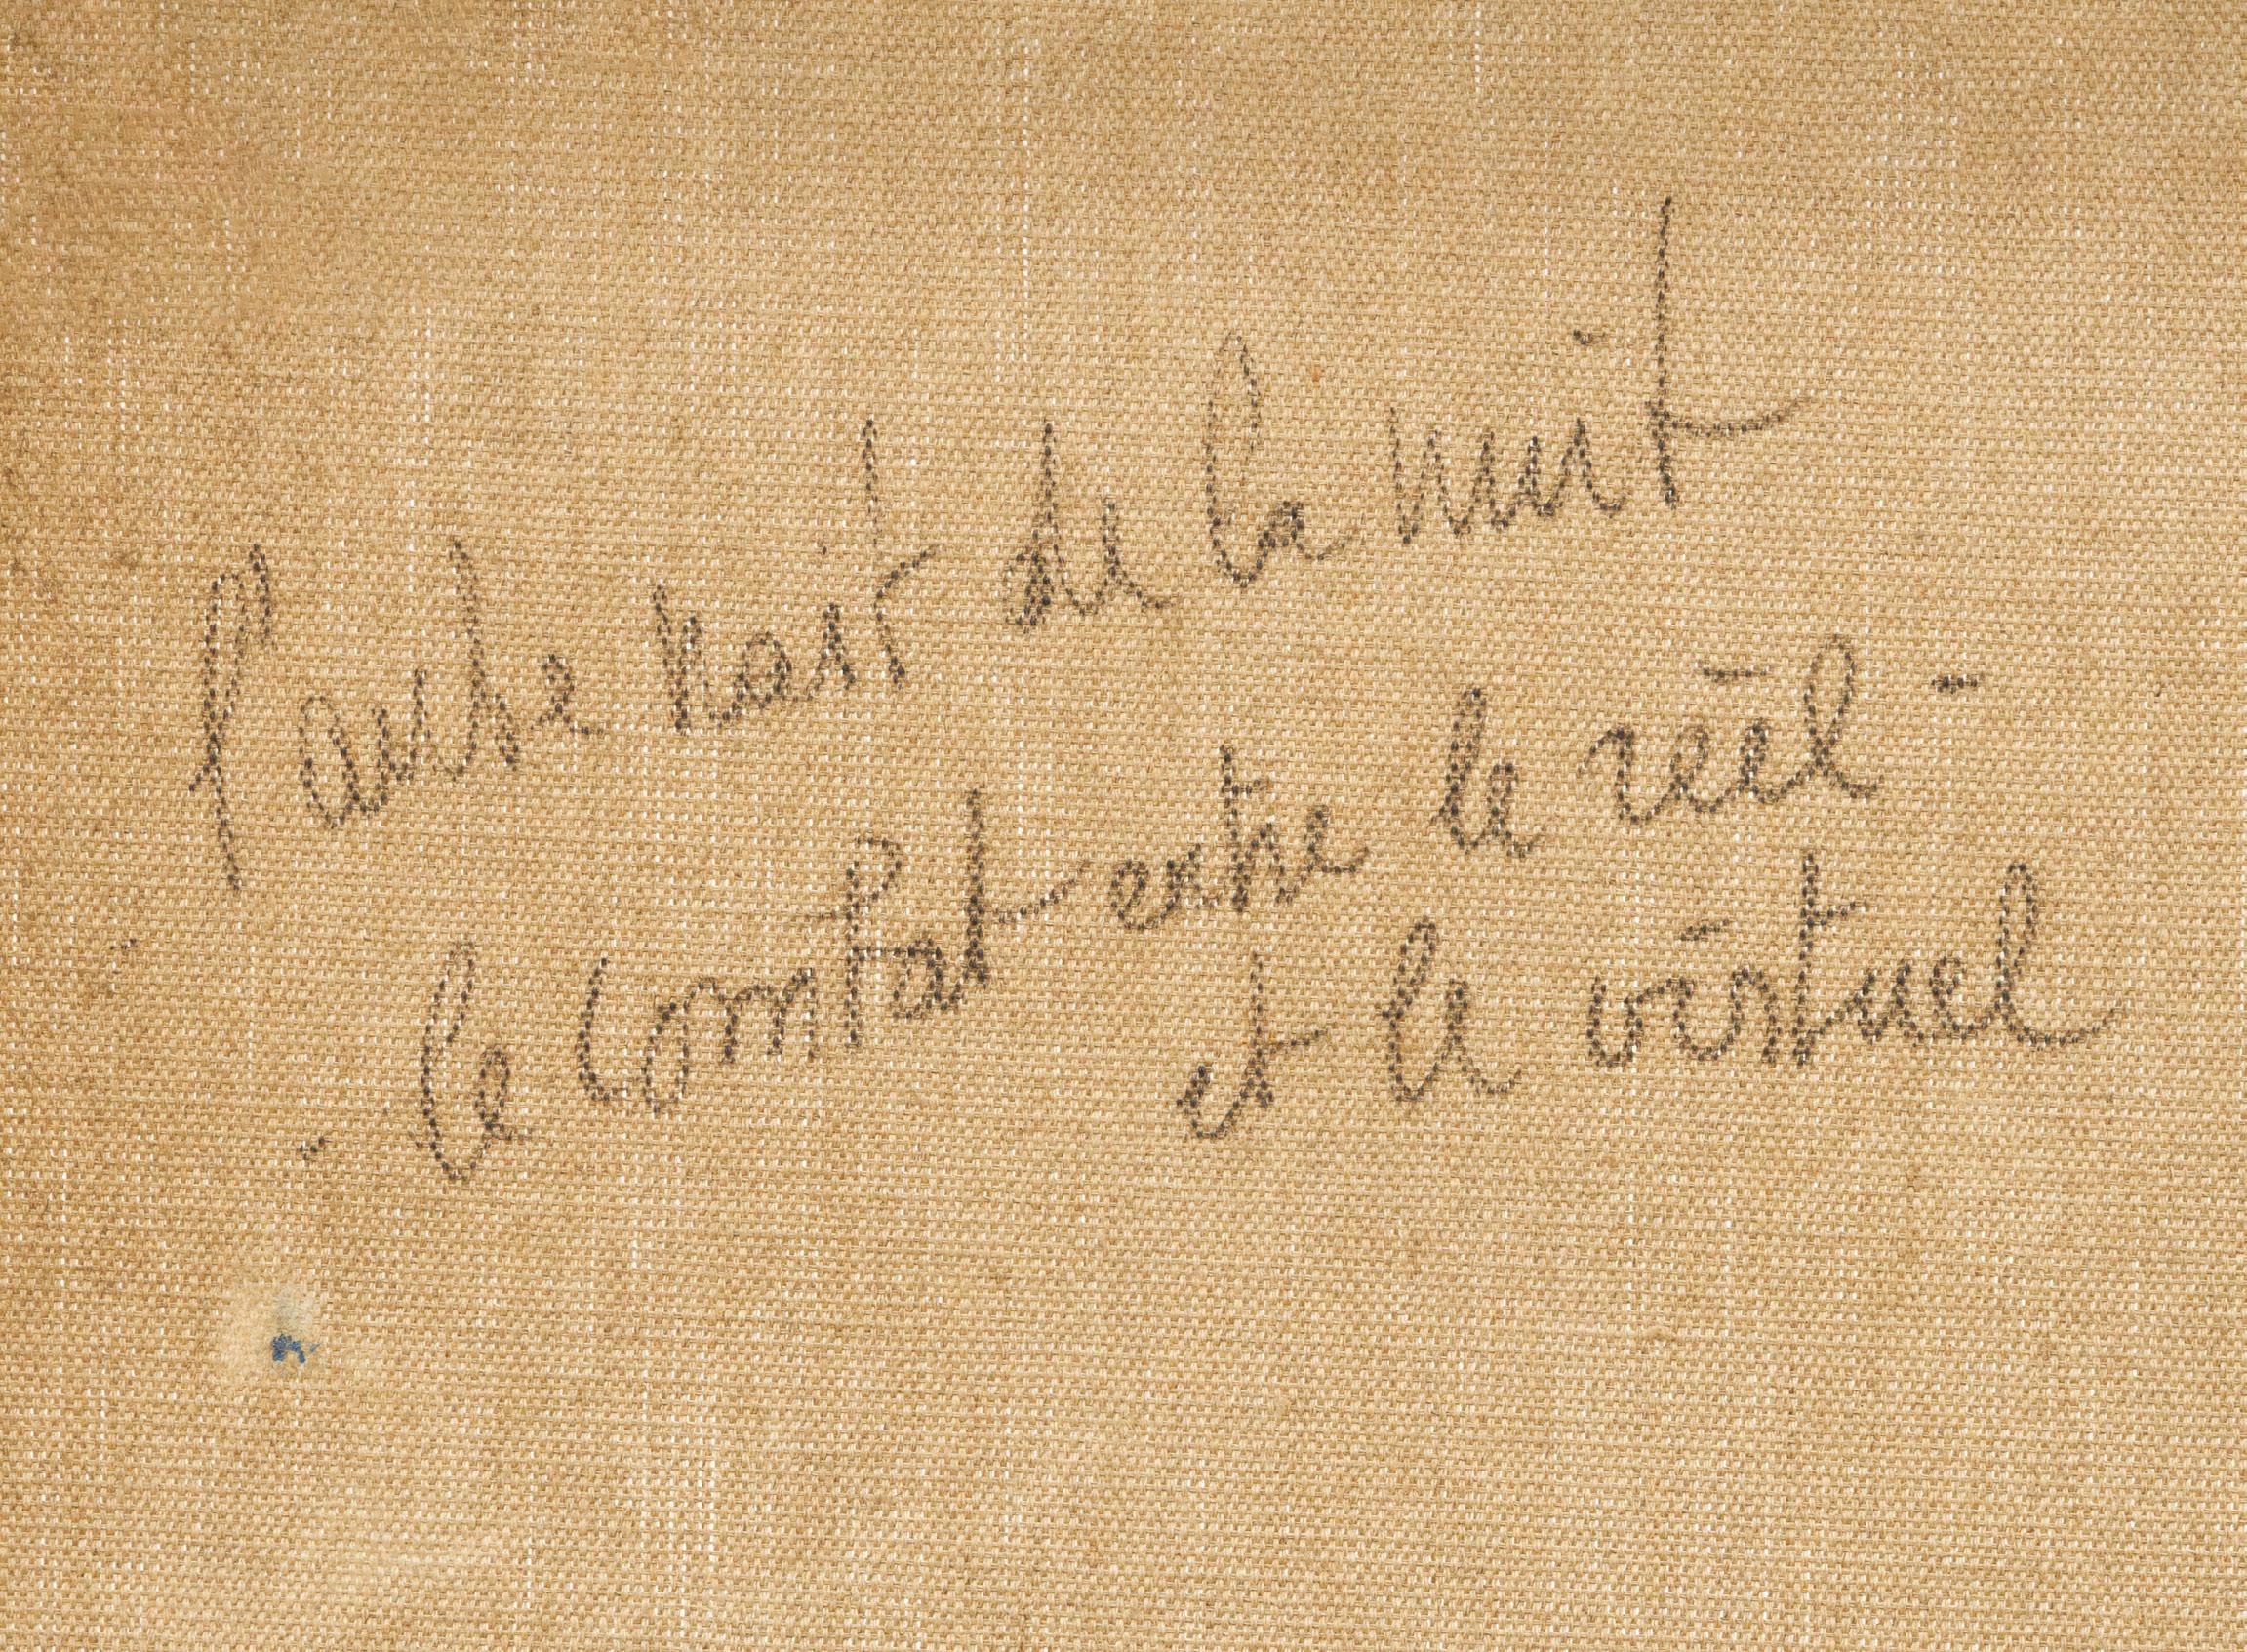 l'aube nait de la nuit
- le combat entre le réel -
et le virtuel